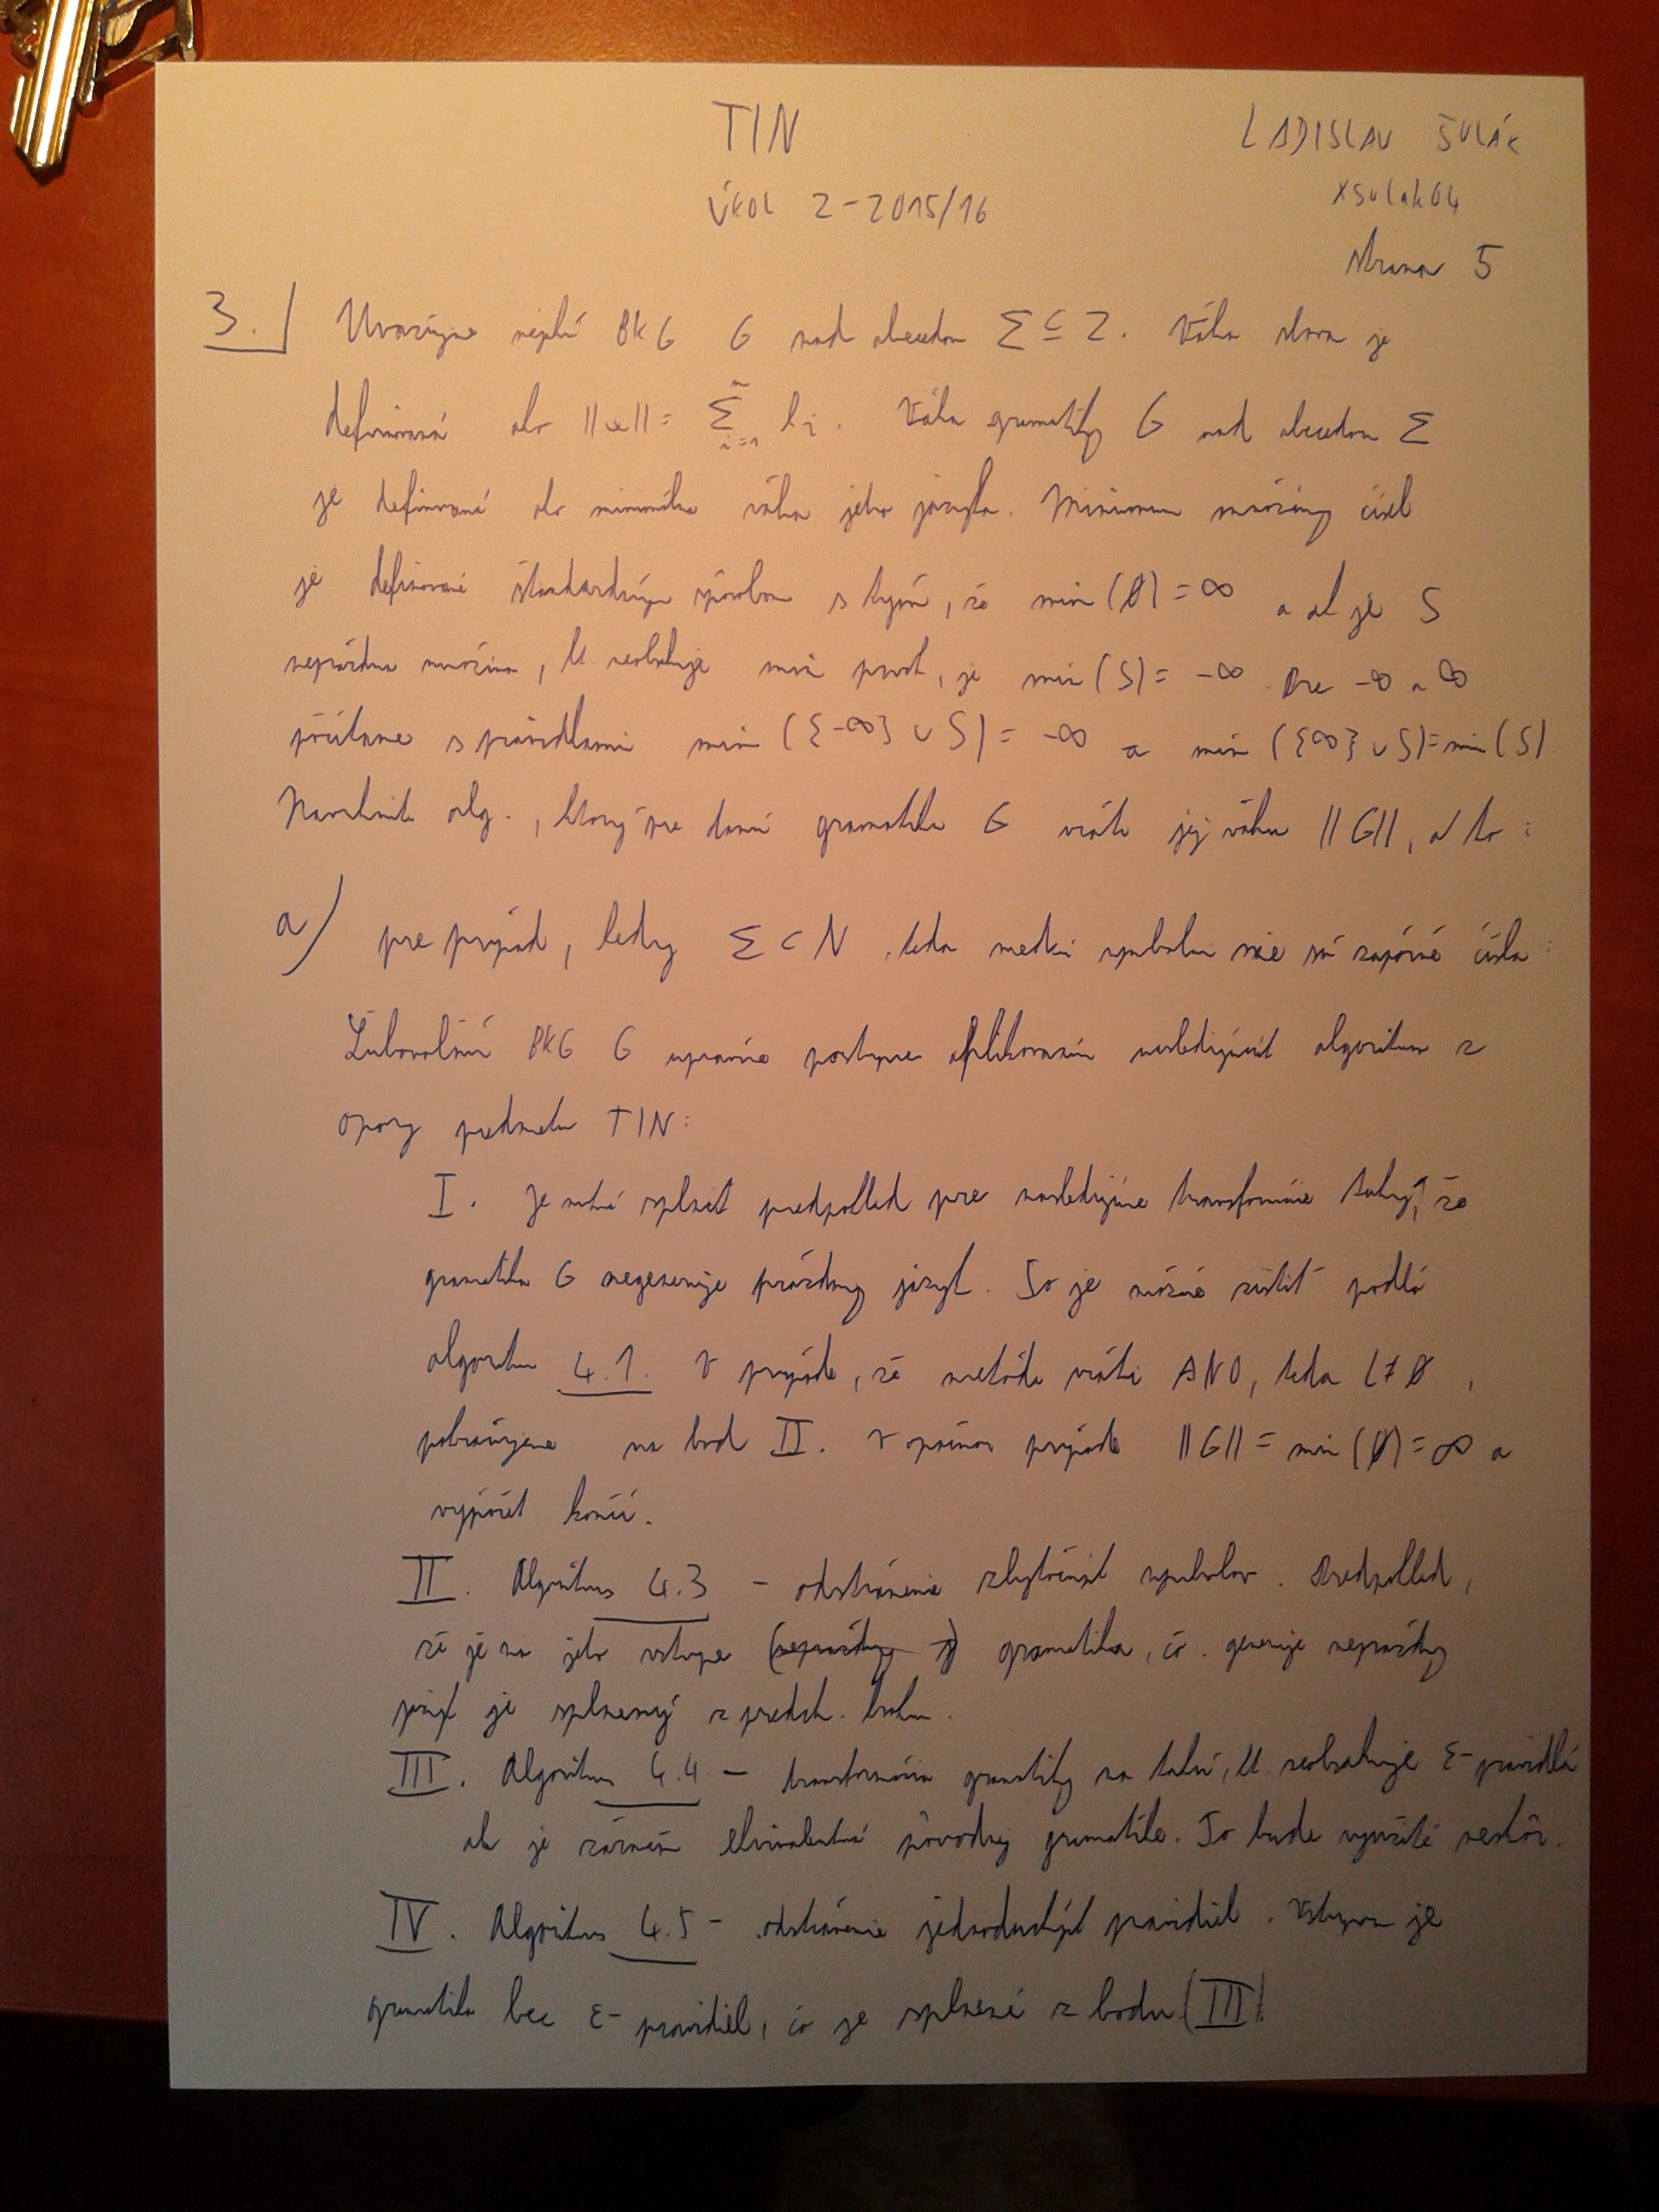 TIN
LADISLAV ŠULÁK
ÚKOL 2 - 2015/16
xsulak04
strana 5
3. Uvažujme BKG G nad abecedou Σ ⊆ Z. Váha slova je
definovaná ako ||w|| = Σ i=1 n li. Váha gramatiky G nad abecedou Σ
je definovaná ako minimálna váha jeho jazyka. Minimum množiny čísel
je definované štandardným spôsobom s tým, že min (∅) = ∞ a ak je S
neprázdna množina, kt. neobsahuje min prvok, je min (S) = -∞. Pre -∞ a ∞
počítame s pravidlami min ({-∞} ∪ S) = -∞ a min ({∞} ∪ S) = min (S).
Navrhnite alg., ktorý pre danú gramatiku G vráti jej váhu ||G||, a to:
a) pre prípad, kedy Σ ⊂ N, teda medzi symbolmi nie sú záporné čísla:
Ľubovolnú BKG G upravíme postupne aplikovaním nasledujúcich algoritmov z
opory predmetu TIN:
I. Je nutné splniť predpoklad pre nasledujúce transformácie taký, že
gramatika G negeneruje prázdny jazyk. To je možné zistiť podľa
algoritmu 4.1. V prípade, že metóda vráti ANO, teda L ≠ ∅,
pokračujeme na bod II. V opačnom prípade ||G|| = min (∅) = ∞ a
výpočet končí.
II. Algoritmus 4.3 - odstránenie zbytočných symbolov. Predpoklad,
že je na jeho vstupe gramatika, čo generuje neprázdny
jazyk je splnený z predch. kroku.
III. Algoritmus 4.4 - transformácia gramatiky na takú, kt. neobsahuje ε-pravidlá
ale je zároveň ekvivalentná pôvodnej gramatike. To bude využité neskôr.
IV. Algoritmus 4.5 - odstránenie jednoduchých pravidiel. Vstupom je
gramatika bez ε-pravidiel, čo je splnené z bodu (III).